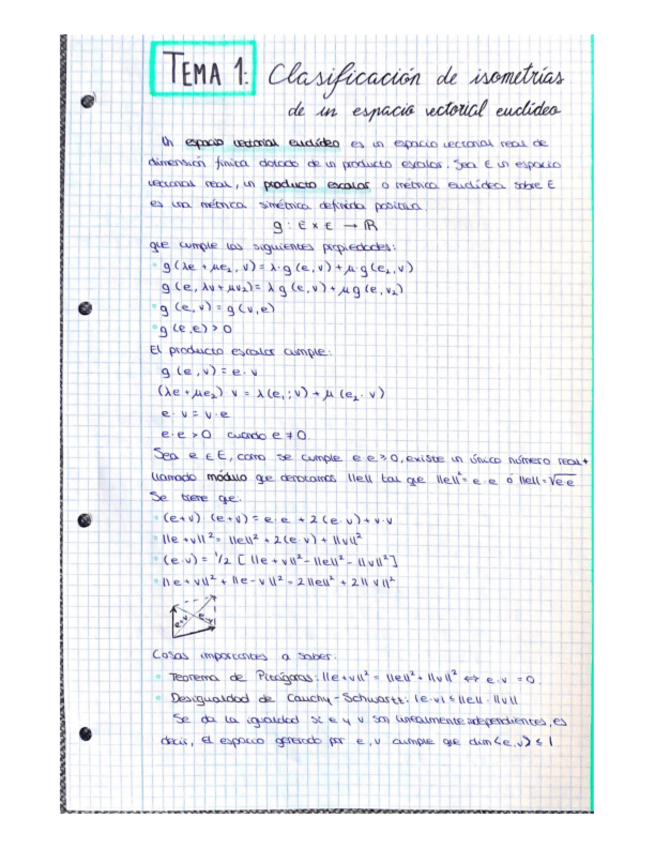 TEMA 1: Clasificación de isometrías
de un espacio vectorial euclídeo
Un espacio vectorial euclídeo es un espacio vectorial real de
dimensión finita dotado de un producto escalar. Sea E un espacio
vectorial real, un producto escalar o métrica euclídea sobre E
es una métrica simétrica definida positiva.
g: E x E → ℝ
que cumple las siguientes propiedades:
• g(λe + μe₂, v) = λ·g(e, v) + μ g(e₂, v)
g(e, λv + μv₂) = λ g(e, v) + μ g(e, v₂)
• g(e, v) = g(v, e)
• g(e, e) > 0
El producto escalar cumple:
g(e, v) = e · v
(λe + μe₂) v = λ(e₁; v) + μ (e₂ · v)
e · v = v · e
e · e > 0 cuando e ≠ 0.
Sea e ∈ E, como se cumple e e ≥ 0, existe un único número real +
llamado módulo que denotamos ||e|| tal que ||e||² = e · e ó ||e|| = √e e
Se tiene que:
• (e+v) (e+v) = e · e + 2(e · v) + v · v
• ||e + v||² = ||e||² + 2(e · v) + ||v||²
• (e · v) = 1/2 [ ||e + v||² - ||e||² - ||v||² ]
• ||e + v||² + ||e - v||² = 2||e||² + 2||v||²
e+v e-v
Cosas importantes a saber:
• Teorema de Pitágoras: ||e + v||² = ||e||² + ||v||² ⇔ e · v = 0.
• Desigualdad de Cauchy-Schwartz: |e · v| ≤ ||e|| · ||v||
Se da la igualdad si e y v son linealmente dependientes, es
decir, el espacio generado por e, v cumple que dim<e, v> ≤ 1